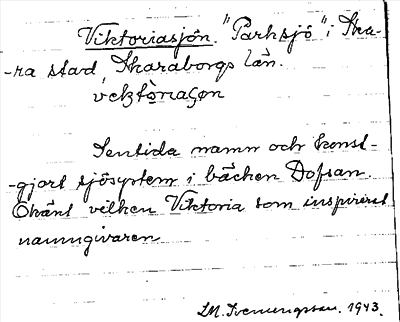 Viktoriasjön. "Parksjö" i Ska-
-ra stad, Skaraborgs län.
Sentida namn och konst-
-gjort sjösystem i bäcken Dofsan.
Okänt vilken Viktoria som inspirerat
namngivaren
I.M. Svenungsson. 1943.